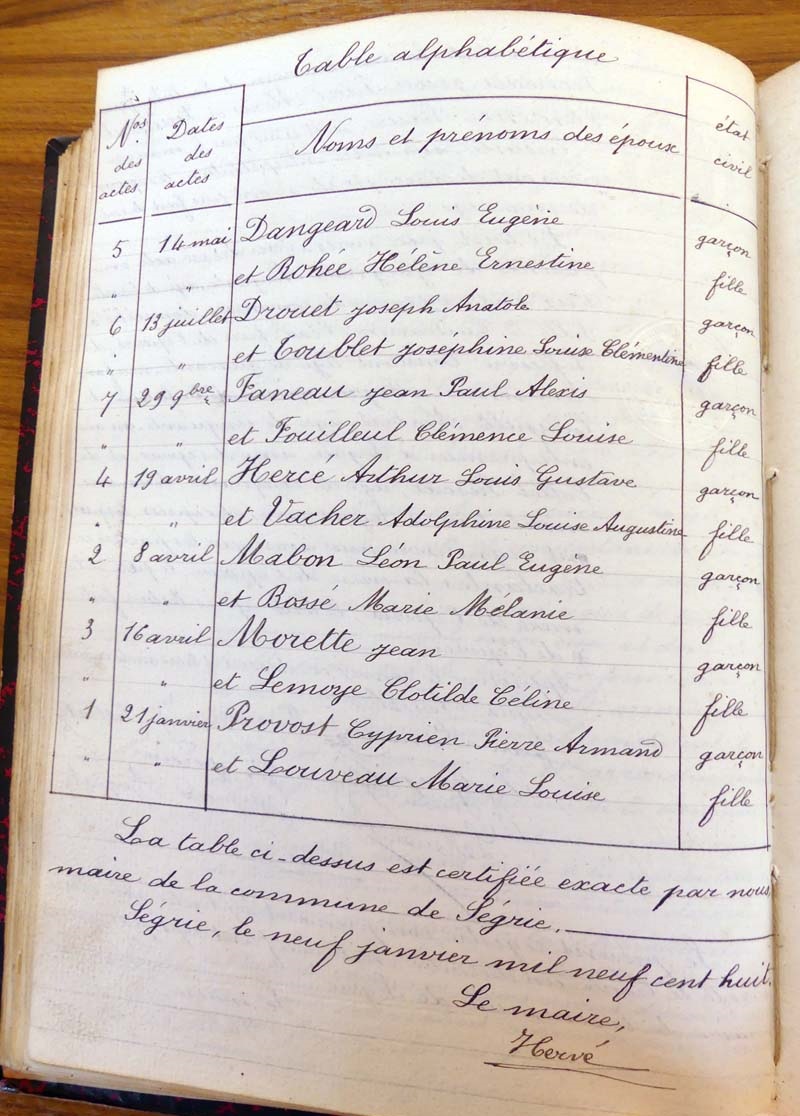 Table alphabétique
Nos des actes Dates des actes Noms et prénoms des époux état civil
5 14 mai Dangeard Louis Eugène garçon
" " et Rohée Hélène Ernestine fille
6 13 juillet Drouet Joseph Anatole garçon
" " et Toublet Joséphine Louise Clémentine fille
7 29 9bre Faneau Jean Paul Alexis garçon
" " et Fouilleul Clémence Louise fille
4 19 avril Hercé Arthur Louis Gustave garçon
" " et Vacher Adolphine Louise Augustine fille
2 8 avril Mabon Léon Paul Eugène garçon
" " et Bossé Marie Mélanie fille
3 16 avril Morette Jean garçon
" " et Lemoye Clotilde Céline fille
1 21 janvier Provost Cyprien Pierre Armand garçon
" " et Louveau Marie Louise fille
La table ci-dessus est certifiée exacte par nous,
maire de la commune de Ségrie.
Ségrie, le neuf janvier mil neuf cent huit.
Le maire,
Hervé